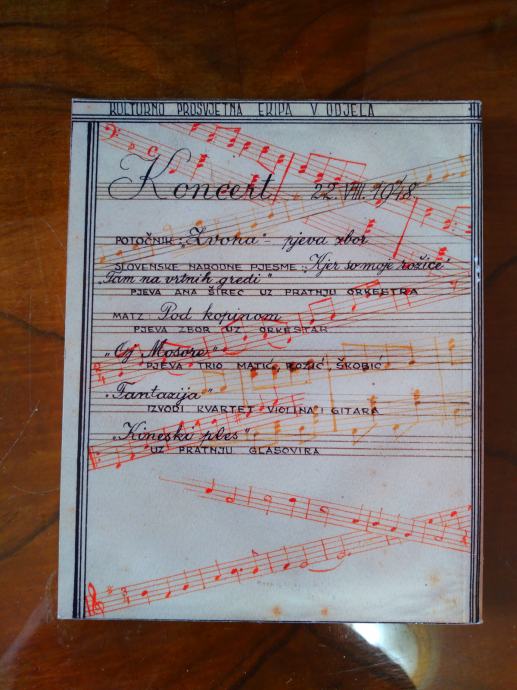 KULTURNO PROSVJETNA EKIPA V ODJELA
Koncert 22. VIII. 1948.
POTOČNIK: „Zvona" - pjeva zbor
SLOVENSKE NARODNE PJESME: „Kjer so moje rožice"
„Tam na vrtnih gredi"
PJEVA ANA ŠIREC UZ PRATNJU ORKESTRA
MATZ: Pod kopinom
PJEVA ZBOR UZ ORKESTAR
„Oj, Mosore"
PJEVA TRIO MATIĆ, ROZIĆ, ŠKOBIĆ
„Fantazija"
IZVODI KVARTET VIOLINA I GITARA
„Kineski ples"
UZ PRATNJU GLASOVIRA